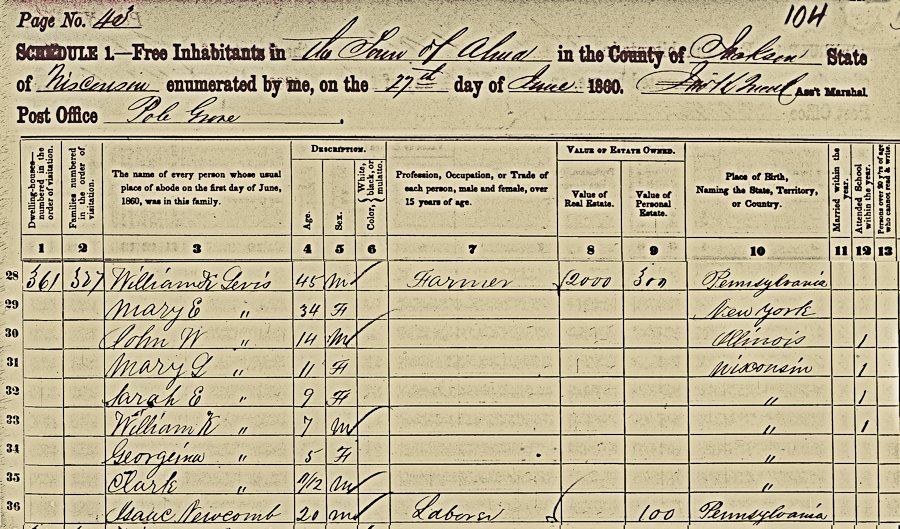 Page No. 43 104
SCHEDULE 1.—Free Inhabitants in the Town of Alma in the County of Jackson State
of Wisconsin enumerated by me, on the 27th day of June 1860. Ass't Marshal.
Post Office Pole Grove .
Dwelling-houses— numbered in the order of visitation.
Families numbered in the order of visitation.
The name of every person whose usual place of abode on the first day of June, 1860, was in this family.
DESCRIPTION.
Age.
Sex.
Color, White, black, or mulatto.
Profession, Occupation, or Trade of each person, male and female, over 15 years of age.
VALUE OF ESTATE OWNED.
Value of Real Estate.
Value of Personal Estate.
Place of Birth, Naming the State, Territory, or Country.
Married within the year.
Attended School within the year.
Persons over 20 y'rs of age who cannot read & write.
1 2 3 4 5 6 7 8 9 10 11 12 13
28 361 327 William K Levis 45 M Farmer 2000 300 Pennsylvania
29 Mary E " 34 F New York
30 John W " 14 M Illinois 1
31 Mary G " 11 F Wisconsin 1
32 Sarah E " 9 F " 1
33 William K " 7 M " 1
34 Georgeina " 5 F "
35 Clark " 11/12 M "
36 Isaac Newcomb 20 M Laborer 100 Pennsylvania